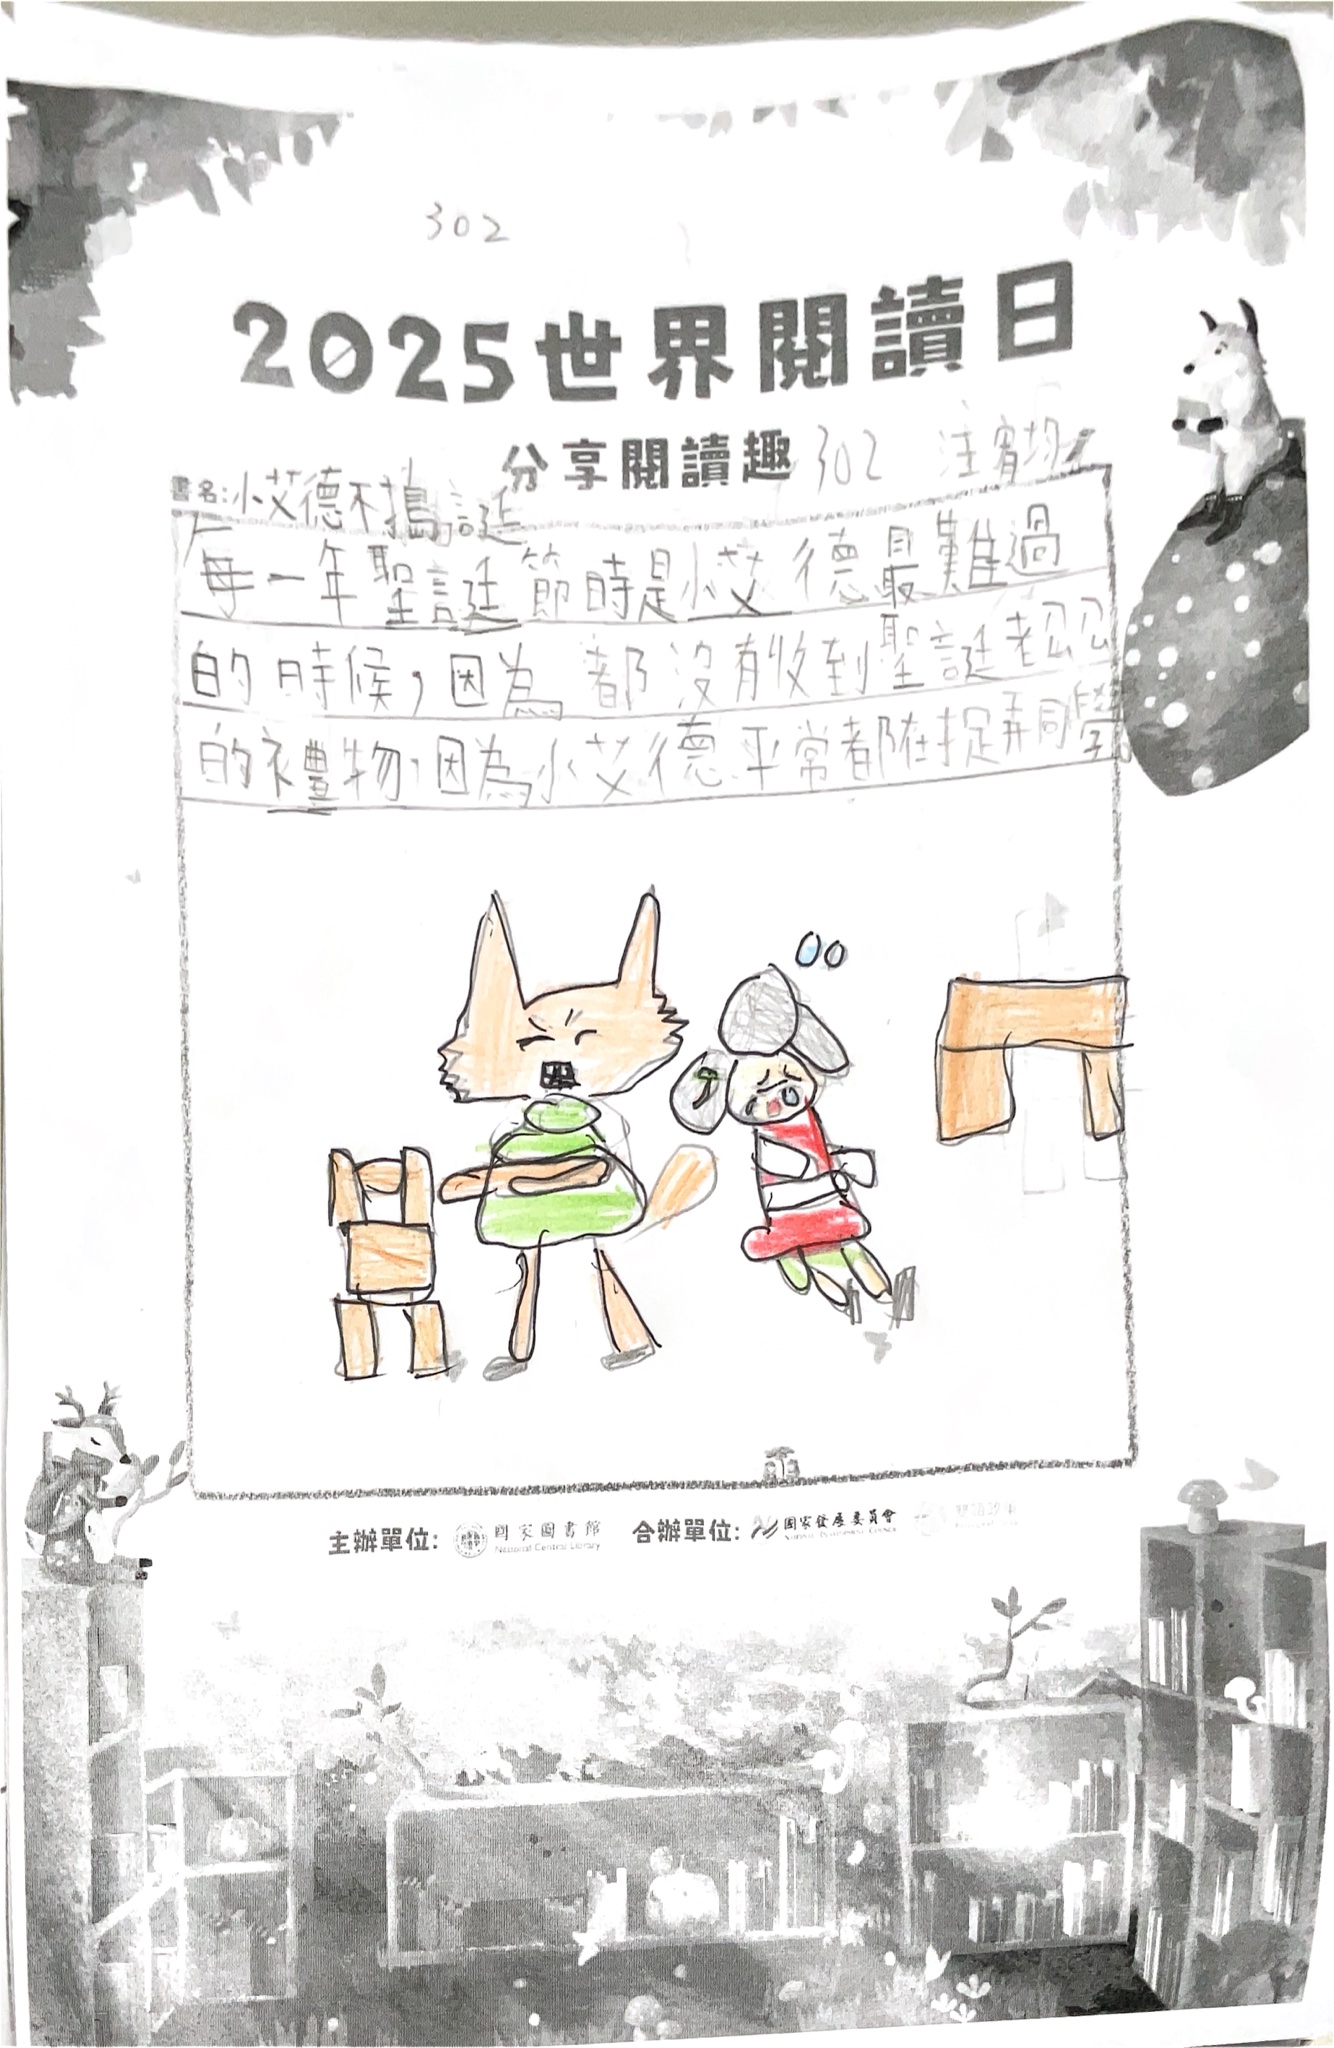 302
2025世界閱讀日
分享閱讀趣 302
書名:小艾德不搗誕
每一年聖誕節時是小艾德最難過
的時候,因為都沒有收到聖誕老公公
的禮物,因為小艾德平常都在捉弄同學。
主辦單位: 國家圖書館 合辦單位: 國家發展委員會
National Central Library